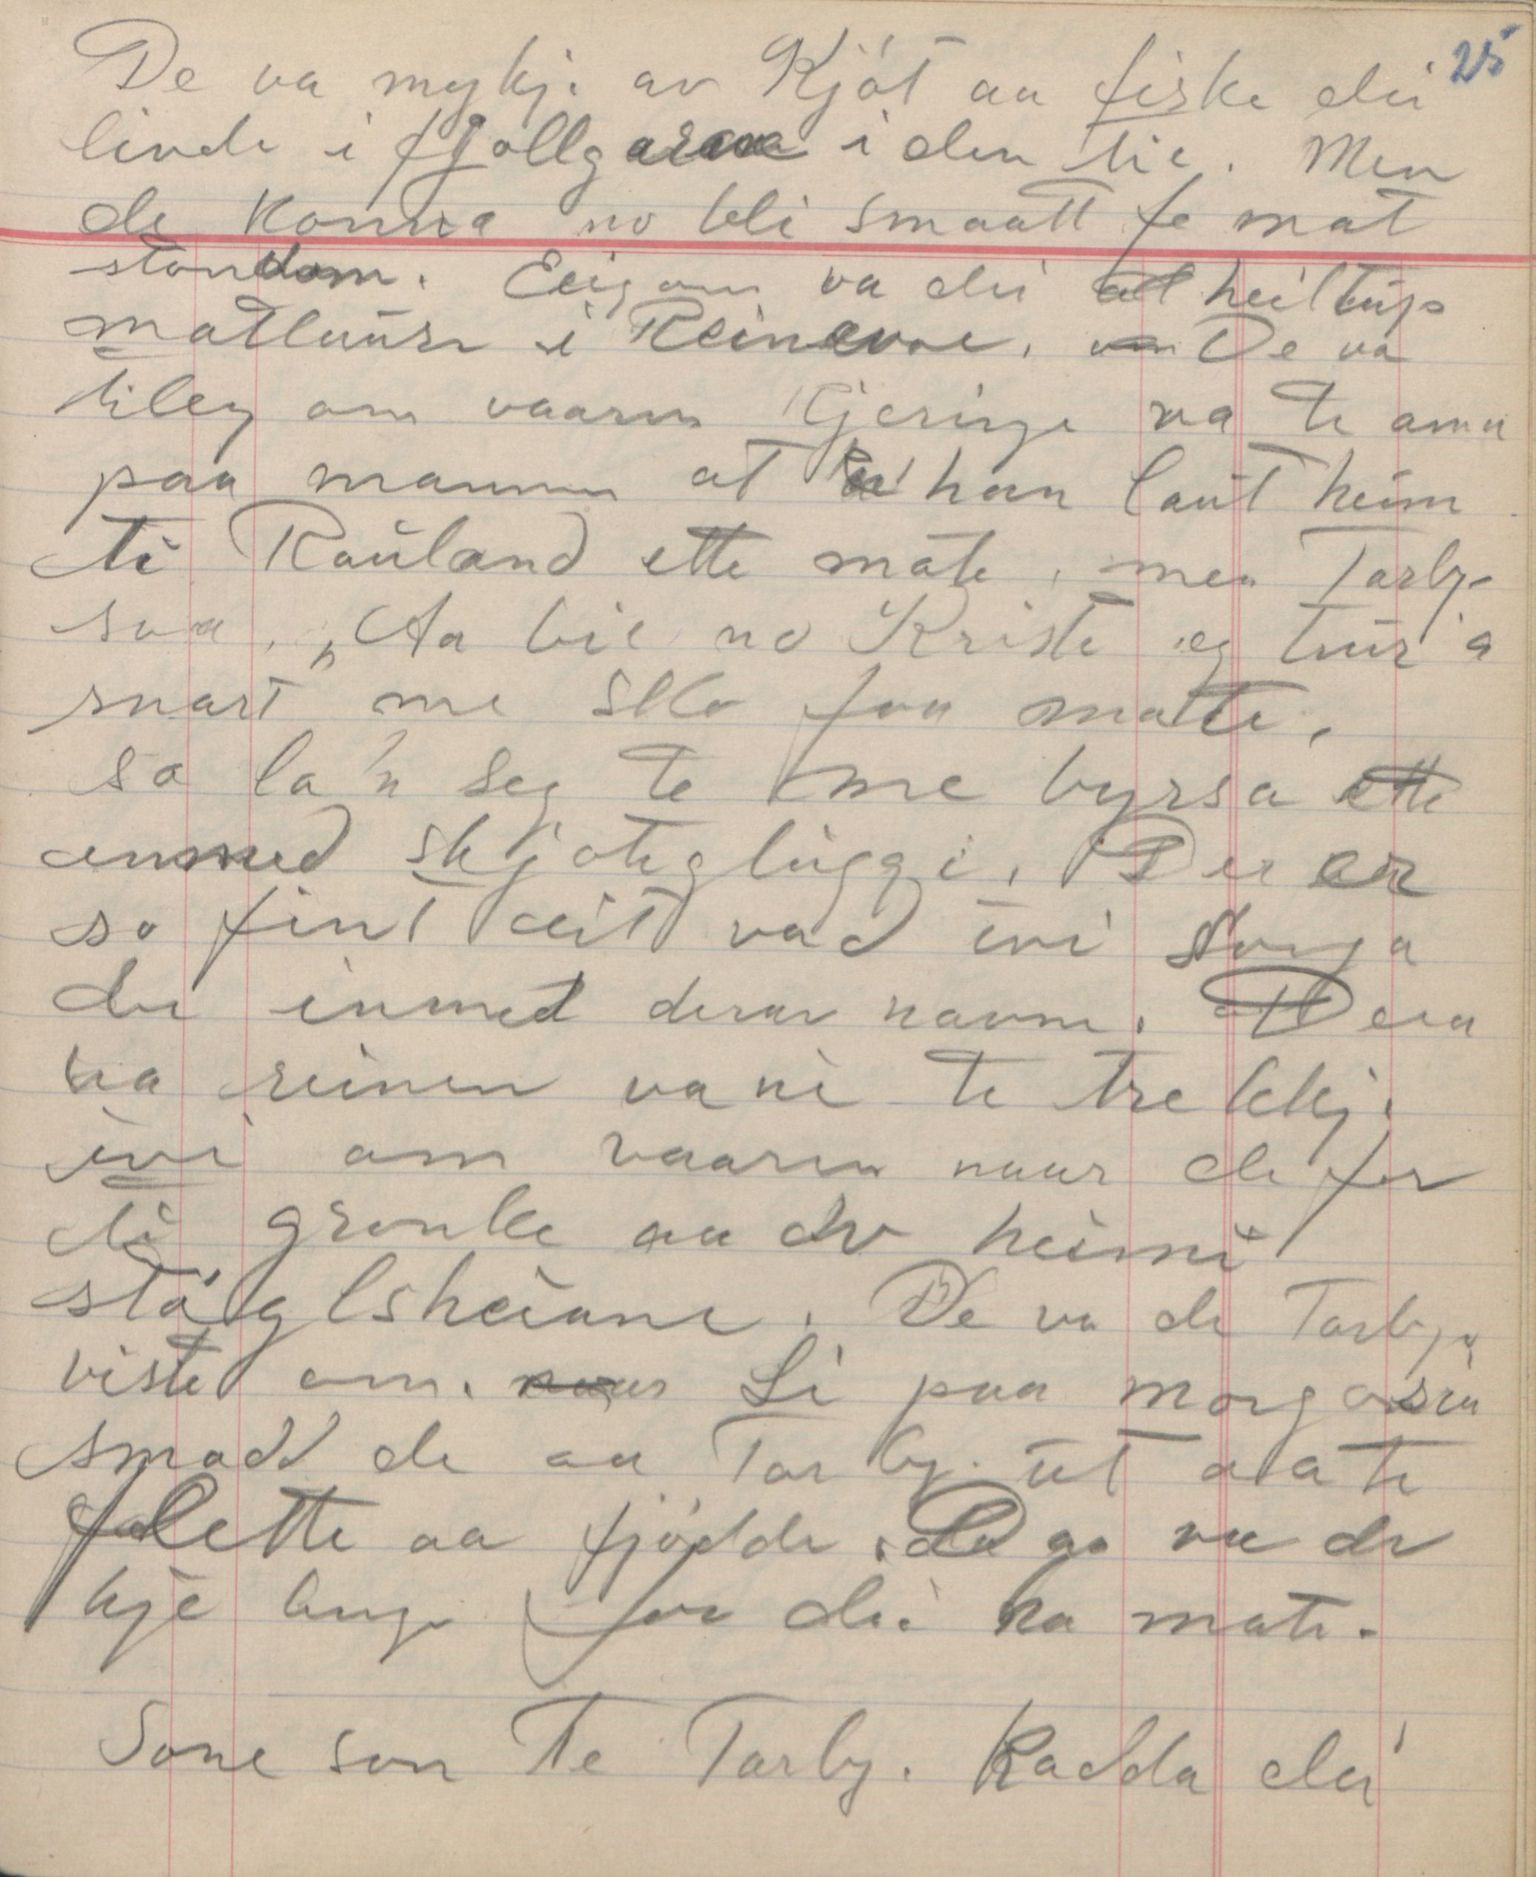 25
De va mykje av Kjöt aa fiske dei
livde i fjøllgarar i den tie. Men
de konna no bli smaatt fe mat
stondom. Eeigong va dei heiltup
matlause i Reinevoe. De va
tileg om vaaren Kjeringe va te
paa mannen at han laut heim
ti Rauland ette mate, men Tarbj.
svara. „Aa bie no Kriste eg trur a
snart me sko faa mate.
so la 'n seg te me byrsa
innmed skjoteglüggi. Der er
so fint eit vad ivi
der inmed derav navne. Der
va reinen vane te trekkje
ivi om vaaren naar de for
ti gronke aa dr heimi
stöglsheiane. De va de Tarbj.
viste om. Li paa morgosia
smadd de aa Tarbj. üt aa te
flette aa fjödde. Daa va de
kje lenge før dei ha mate.
Sone son Te Tarbj. Kadda dei